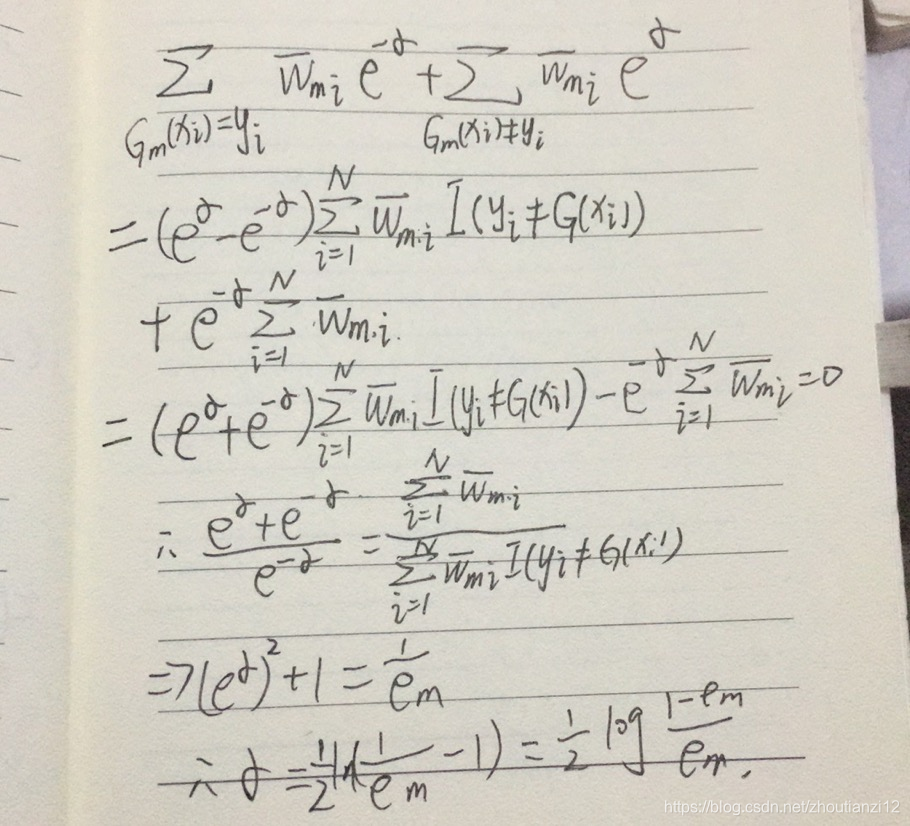 ∑_{G_m(x_i)=y_i} w̄_{mi} e^{-α} + ∑_{G_m(x_i)≠y_i} w̄_{mi} e^{α}
= (e^{α} - e^{-α}) ∑_{i=1}^{N} w̄_{m.i} I(y_i ≠ G(x_i))
+ e^{-α} ∑_{i=1}^{N} w̄_{m.i}.
= (e^{α} + e^{-α}) ∑_{i=1}^{N} w̄_{m.i} I(y_i ≠ G(x_i)) - e^{-α} ∑_{i=1}^{N} w̄_{mi} = 0
∴ (e^{α} + e^{-α}) / e^{-α} = ∑_{i=1}^{N} w̄_{m.i} / ∑_{i=1}^{N} w̄_{mi} I(y_i ≠ G(x_i))
=> (e^{α})^2 + 1 = 1/e_m
∴ α = 1/2 ln(1/e_m - 1) = 1/2 log (1-e_m)/e_m.
https://blog.csdn.net/zhoutianzi12